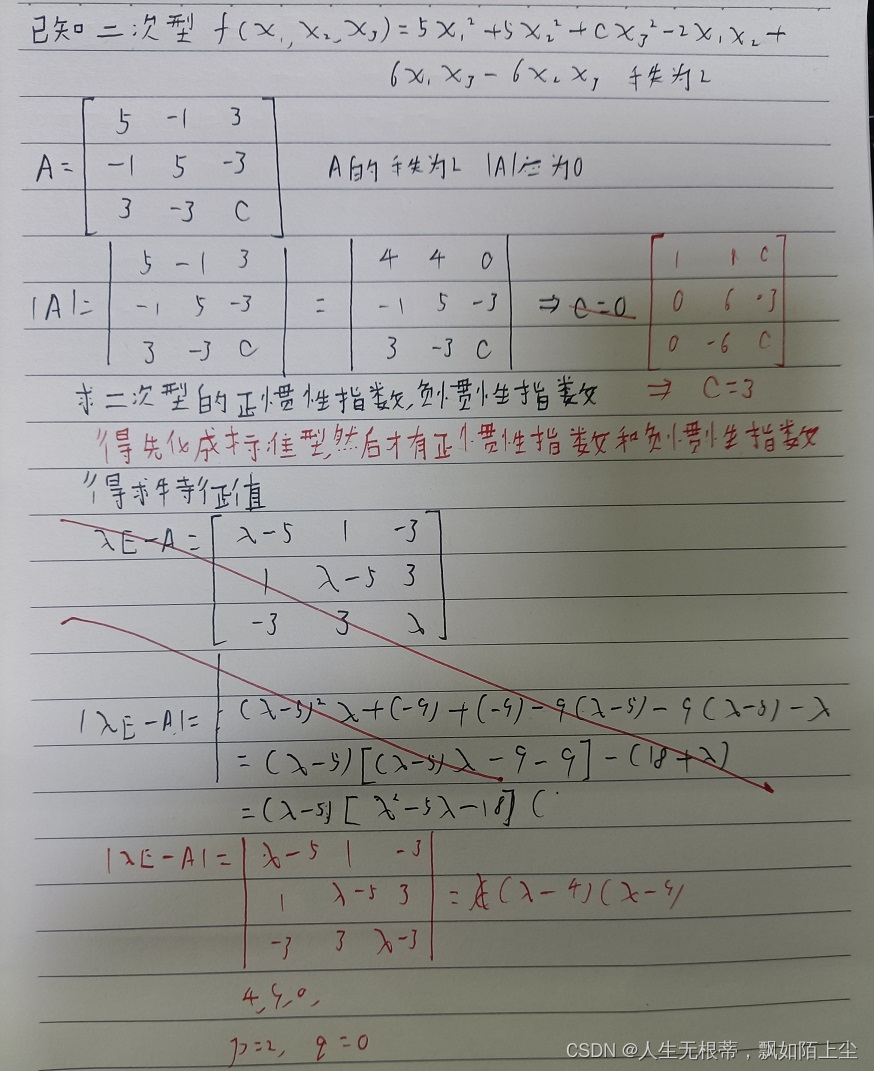 已知二次型 f(x₁,x₂,x₃)=5x₁²+5x₂²+cx₃²-2x₁x₂+
6x₁x₃-6x₂x₃ 秩为2
A= [ 5 -1 3
-1 5 -3 A的秩为2 |A|=为0
3 -3 C ]
5 -1 3 4 4 0 1 1 0
|A|= -1 5 -3 = -1 5 -3 ⇒ C=0 0 6 -3
3 -3 C 3 -3 C 0 -6 C
求二次型的正惯性指数,负惯性指数 ⇒ C=3
得先化成标准型,然后才有正惯性指数和负惯性指数
得求特征值
λE-A= [ λ-5 1 -3
1 λ-5 3
-3 3 λ ]
|λE-A|= (λ-5)²λ+(-9)+(-9)-9(λ-5)-9(λ-5)-λ
=(λ-5)[(λ-5)λ-9-9]-(18+λ)
=(λ-5)[λ²-5λ-18](
|λE-A|= λ-5 1 -3
1 λ-5 3 =λ(λ-4)(λ-9)
-3 3 λ-3
4,9,0,
p=2, q=0
CSDN @人生无根蒂,飘如陌上尘